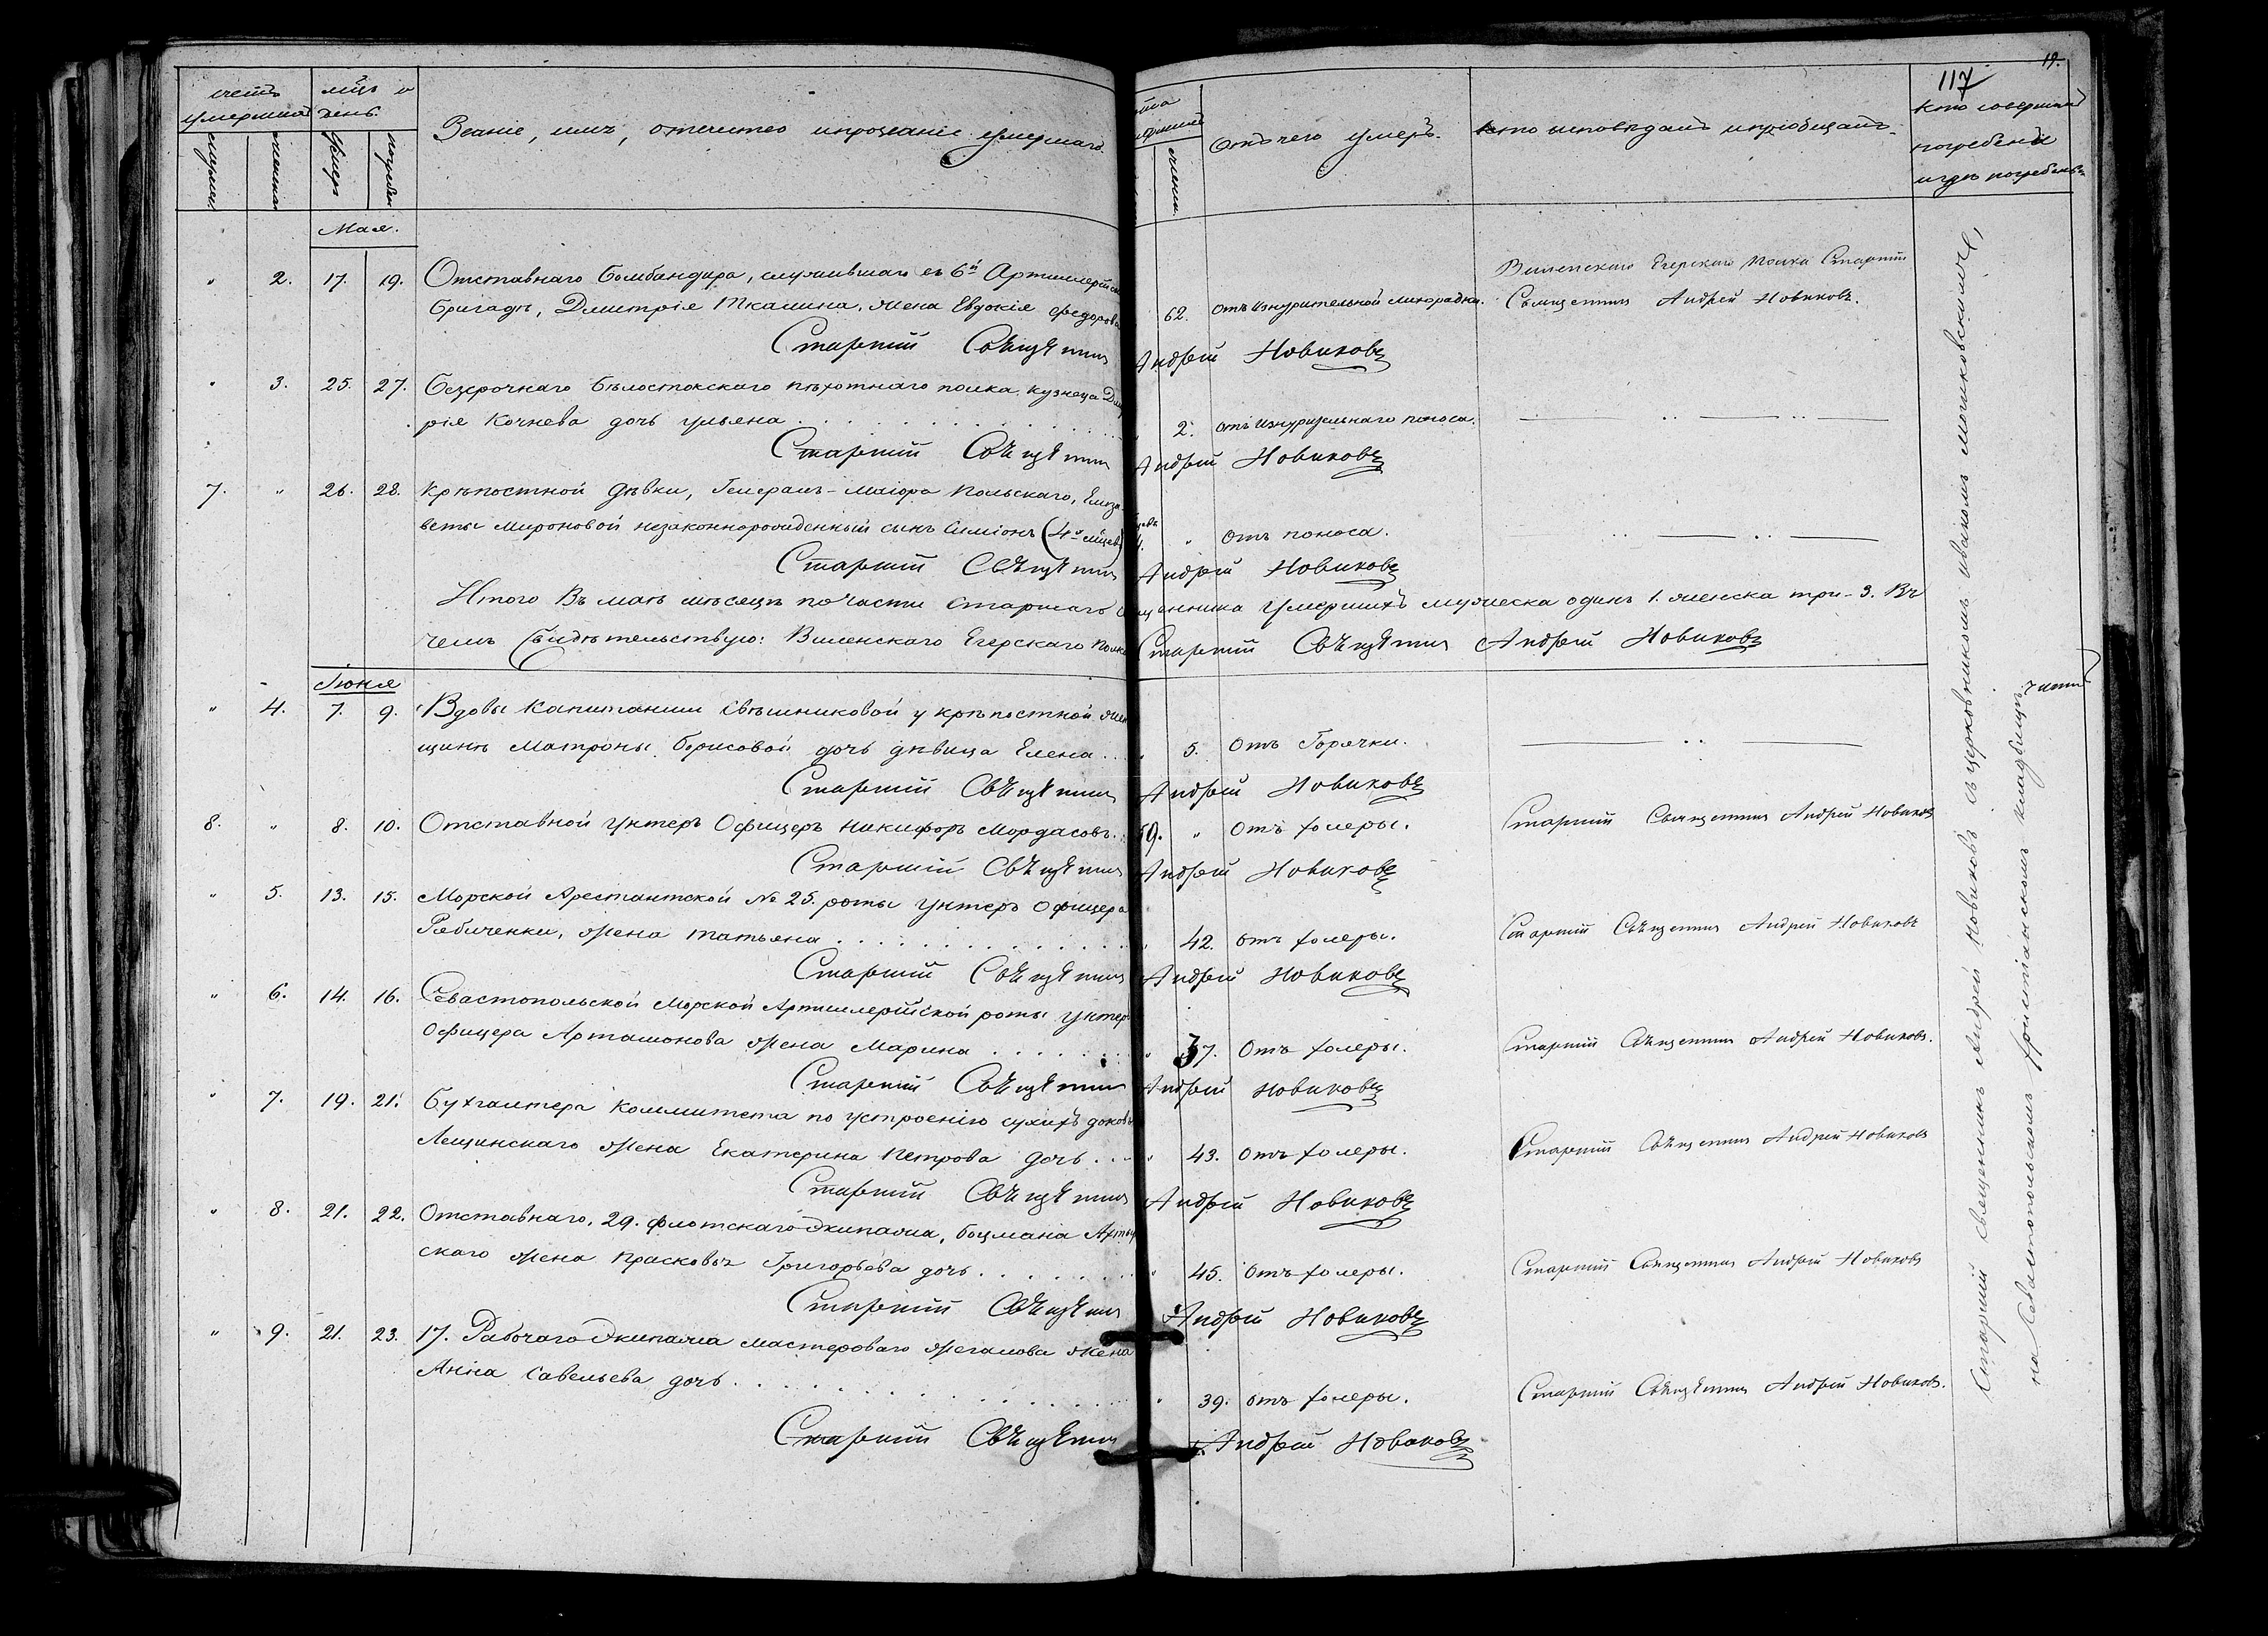 117
19.
счетъ умершихъ
мцъ и день.
Званіе, имя, отечество и прозваніе умершаго.
Отъ чего умеръ.
Кто исповѣдалъ и пріобщалъ.
Кто совершалъ
погребеніе
и гдѣ погребены
Мая.
" 2. 17. 19. Отставнаго Бомбандира, служившаго въ 6й Артиллерійской
Бригадѣ, Дмитрія Ткалина, жена Евдокія Федорова 62. Отъ изнурительной лихорадки. Виленскаго Егерскаго Полка Старшій
Священникъ Андрей Новиковъ.
Старшій Священникъ Андрей Новиковъ
" 3. 25. 27. Безсрочнаго Бѣлостокскаго пѣхотнаго полка кузнеца Дмит
рія Кочнева дочь Ульяна 2. отъ изнурительнаго поноса.
Старшій Священникъ Андрей Новиковъ
7. " 26. 28. Крѣпостной дѣвки, Генералъ-Маіора Польскаго, Елиза
веты Мироновой незаконнорожденный сынъ Симіонъ (4хъ мѣсяцевъ) 4. " Отъ поноса.
Старшій Священникъ Андрей Новиковъ
Итого Въ маѣ мѣсяцѣ по части Старшаго Священника Умершихъ мужеска одинъ 1. женска три - 3. Въ
чемъ Свидѣтельствую: Виленскаго Егерскаго Полка Старшій Священникъ Андрей Новиковъ
Іюня
" 4. 7. 9. Вдовы Капитанши Свѣшниковой у крѣпостной жен
щины Матроны Борисовой дочь дѣвица Елена 5. Отъ Горячки.
Старшій Священникъ Андрей Новиковъ
8. " 8. 10. Отставной Унтеръ Офицеръ Никифоръ Мордасовъ. 59. " Отъ холеры. Старшій Священникъ Андрей Новиковъ
Старшій Священникъ Андрей Новиковъ
" 5. 13. 15. Морской Арестантской № 25. роты Унтеръ Офицера
Рябиченки, жена Татьяна " 42. Отъ холеры. Старшій Священникъ Андрей Новиковъ
Старшій Священникъ Андрей Новиковъ
" 6. 14. 16. Севастопольской Морской Артиллерійской роты Унтеръ
Офицера Арташонова жена Марина " 37. Отъ холеры. Старшій Священникъ Андрей Новиковъ.
Старшій Священникъ Андрей Новиковъ
" 7. 19. 21. Бухгалтера Коммитета по устроенію сухихъ доковъ
Лещинскаго жена Екатерина Петрова дочь " 43. Отъ холеры. Старшій Священникъ Андрей Новиковъ
Старшій Священникъ Андрей Новиковъ
" 8. 21. 22. Отставнаго, 29. флотскаго Экипажа, боцмана
скаго жена Прасковья Григорьева дочь " 45. Отъ холеры. Старшій Священникъ Андрей Новиковъ
Старшій Священникъ Андрей Новиковъ
" 9. 21. 23. 17. Рабочаго Экипажа мастероваго Жегалова жена
Анна Савельева дочь " 39. отъ холеры. Старшій Священникъ Андрей Новиковъ.
Старшій Священникъ Андрей Новиковъ
Старшій священникъ Андрей Новиковъ съ церковникомъ Иваномъ
на Севастопольскомъ Христіанскомъ кладбищѣ